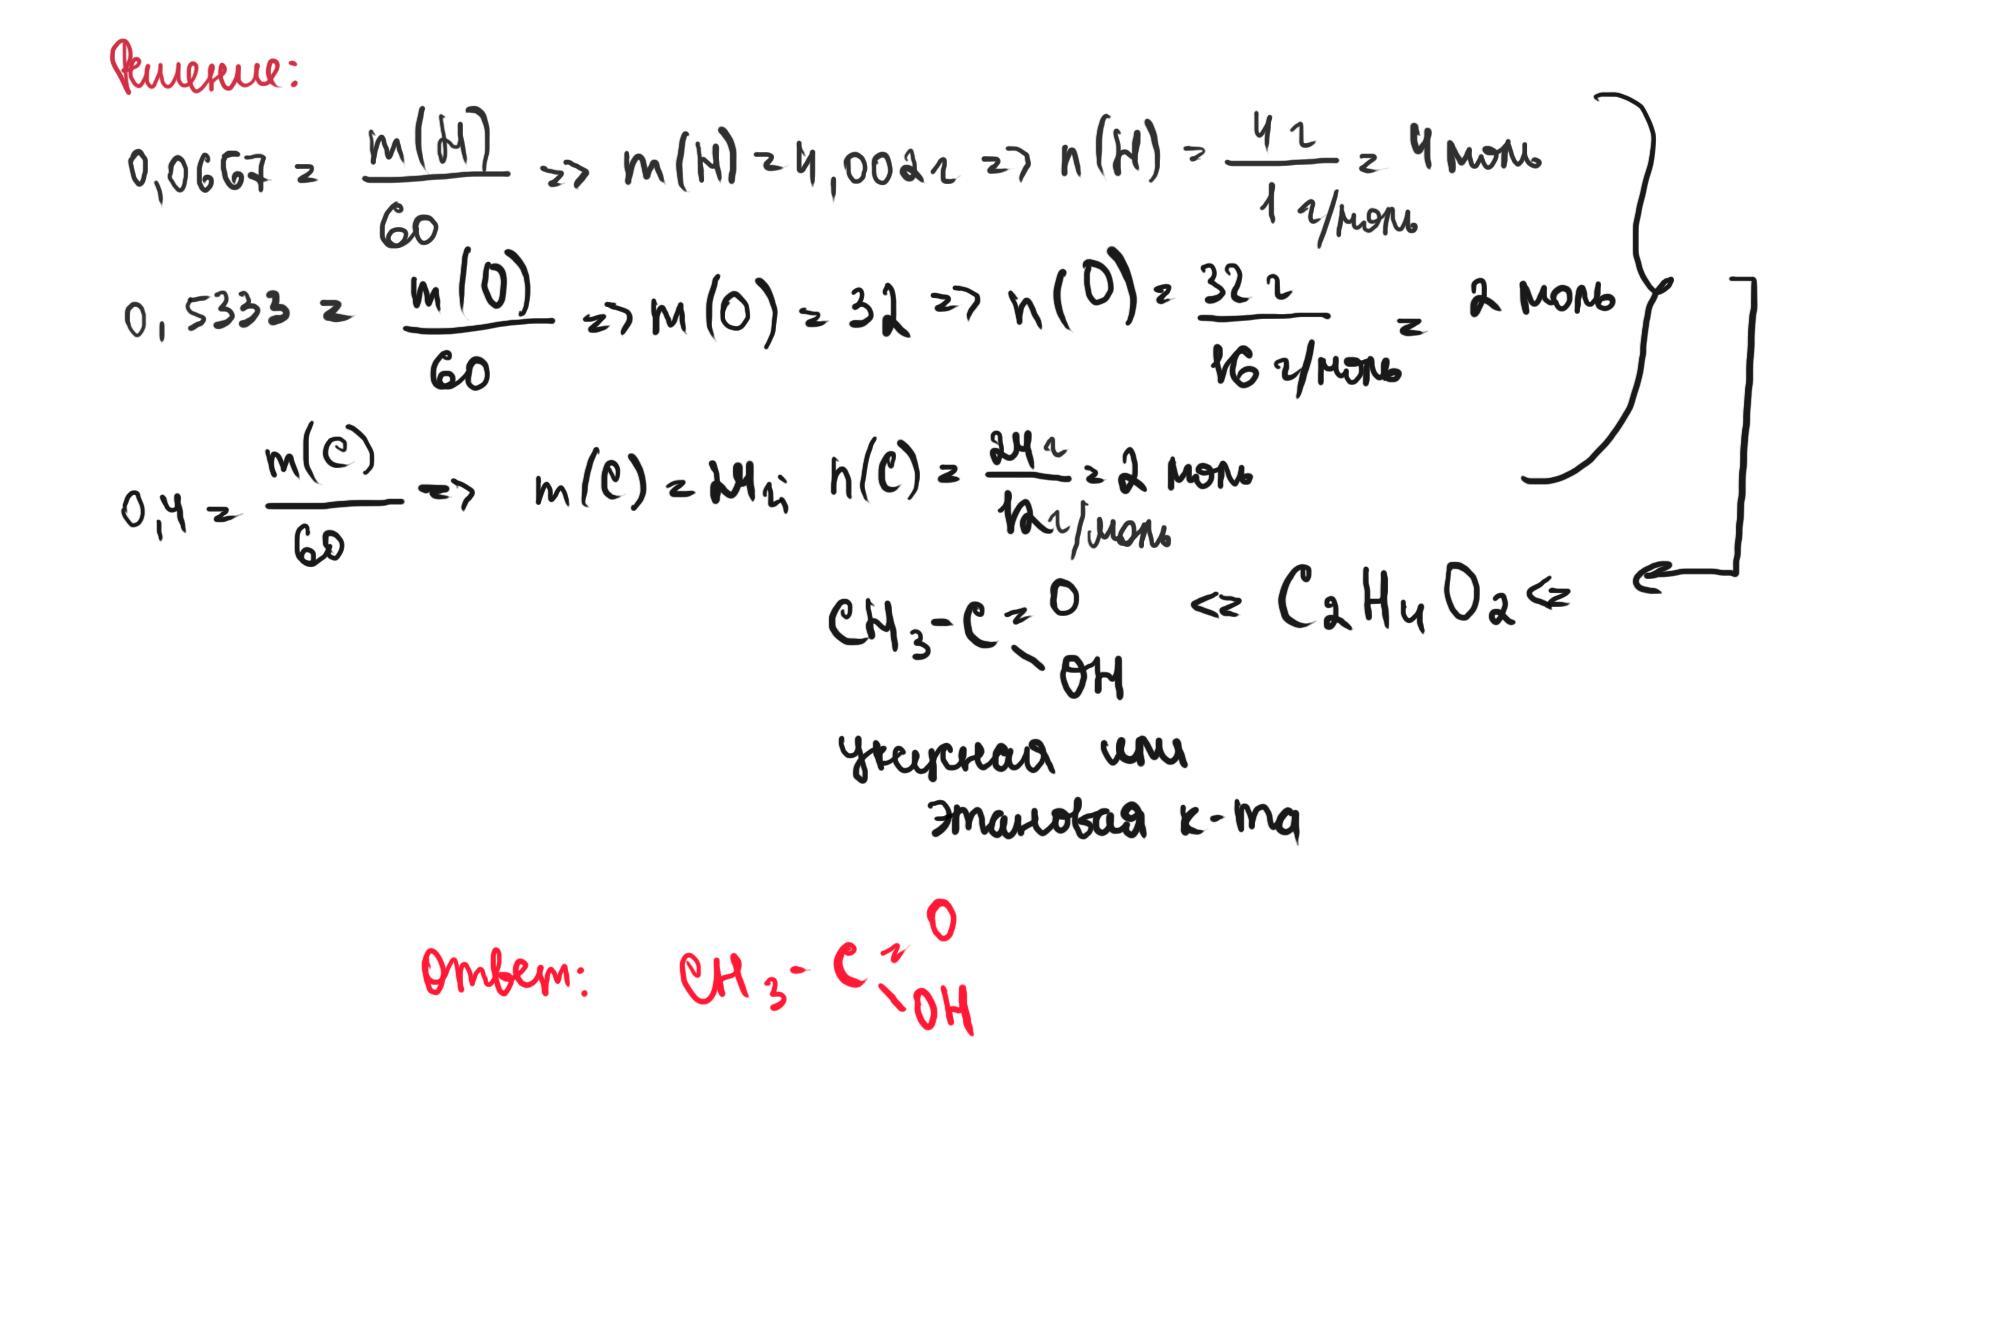 Решение:
0,0667 = m(H)/60 => m(H) = 4,002 г => n(H) = 4 г/1 г/моль = 4 моль
0,5333 = m(O)/60 => m(O) = 32 => n(O) = 32 г/16 г/моль = 2 моль
0,4 = m(C)/60 => m(C) = 24 г; n(C) = 24 г/12 г/моль = 2 моль
CH3-C=O \OH <= C2H4O2 <=
уксусная или
этановая к-та
Ответ: CH3-C=O \OH